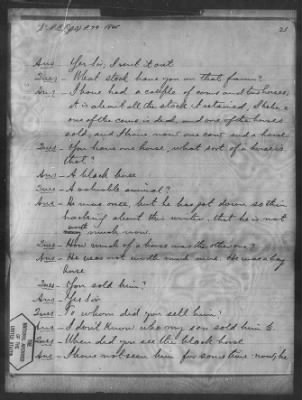 25
Ans - Yes Sir, I rent it out
Ques - What stock have you on that farm?
Ans - I have had a couple of cows and two horses,
it is about all the stock I retained, I think
one of the cows is dead, and one of the horses
sold, and I have now one cow and a horse
Ques - You have one horse, what sort of a horse is
that?
Ans - A black horse
Ques - A valuable animal?
Ans - He was once, but he has got down so thin
hacking about this winter, that he is not
worth
much now.
Ques - How much of a horse was the other one?
Ans - He was not worth much more. He was a bay
horse
Ques - You sold him?
Ans - Yes Sir
Ques - To whom did you sell him?
Ans - I don't know who my son sold him to.
Ques - When did you see the black horse
Ans - I have not seen him for some time now, he
THE
NATIONAL ARCHIVES
OF THE
UNITED STATES